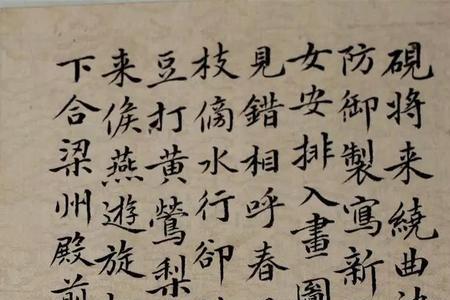 硯將来繞曲
防御製寫新
女安排入畫圖
見錯相呼春
枝傍水行卻
豆打黃鶯梨
来候燕遊旋
下合梁州殿前